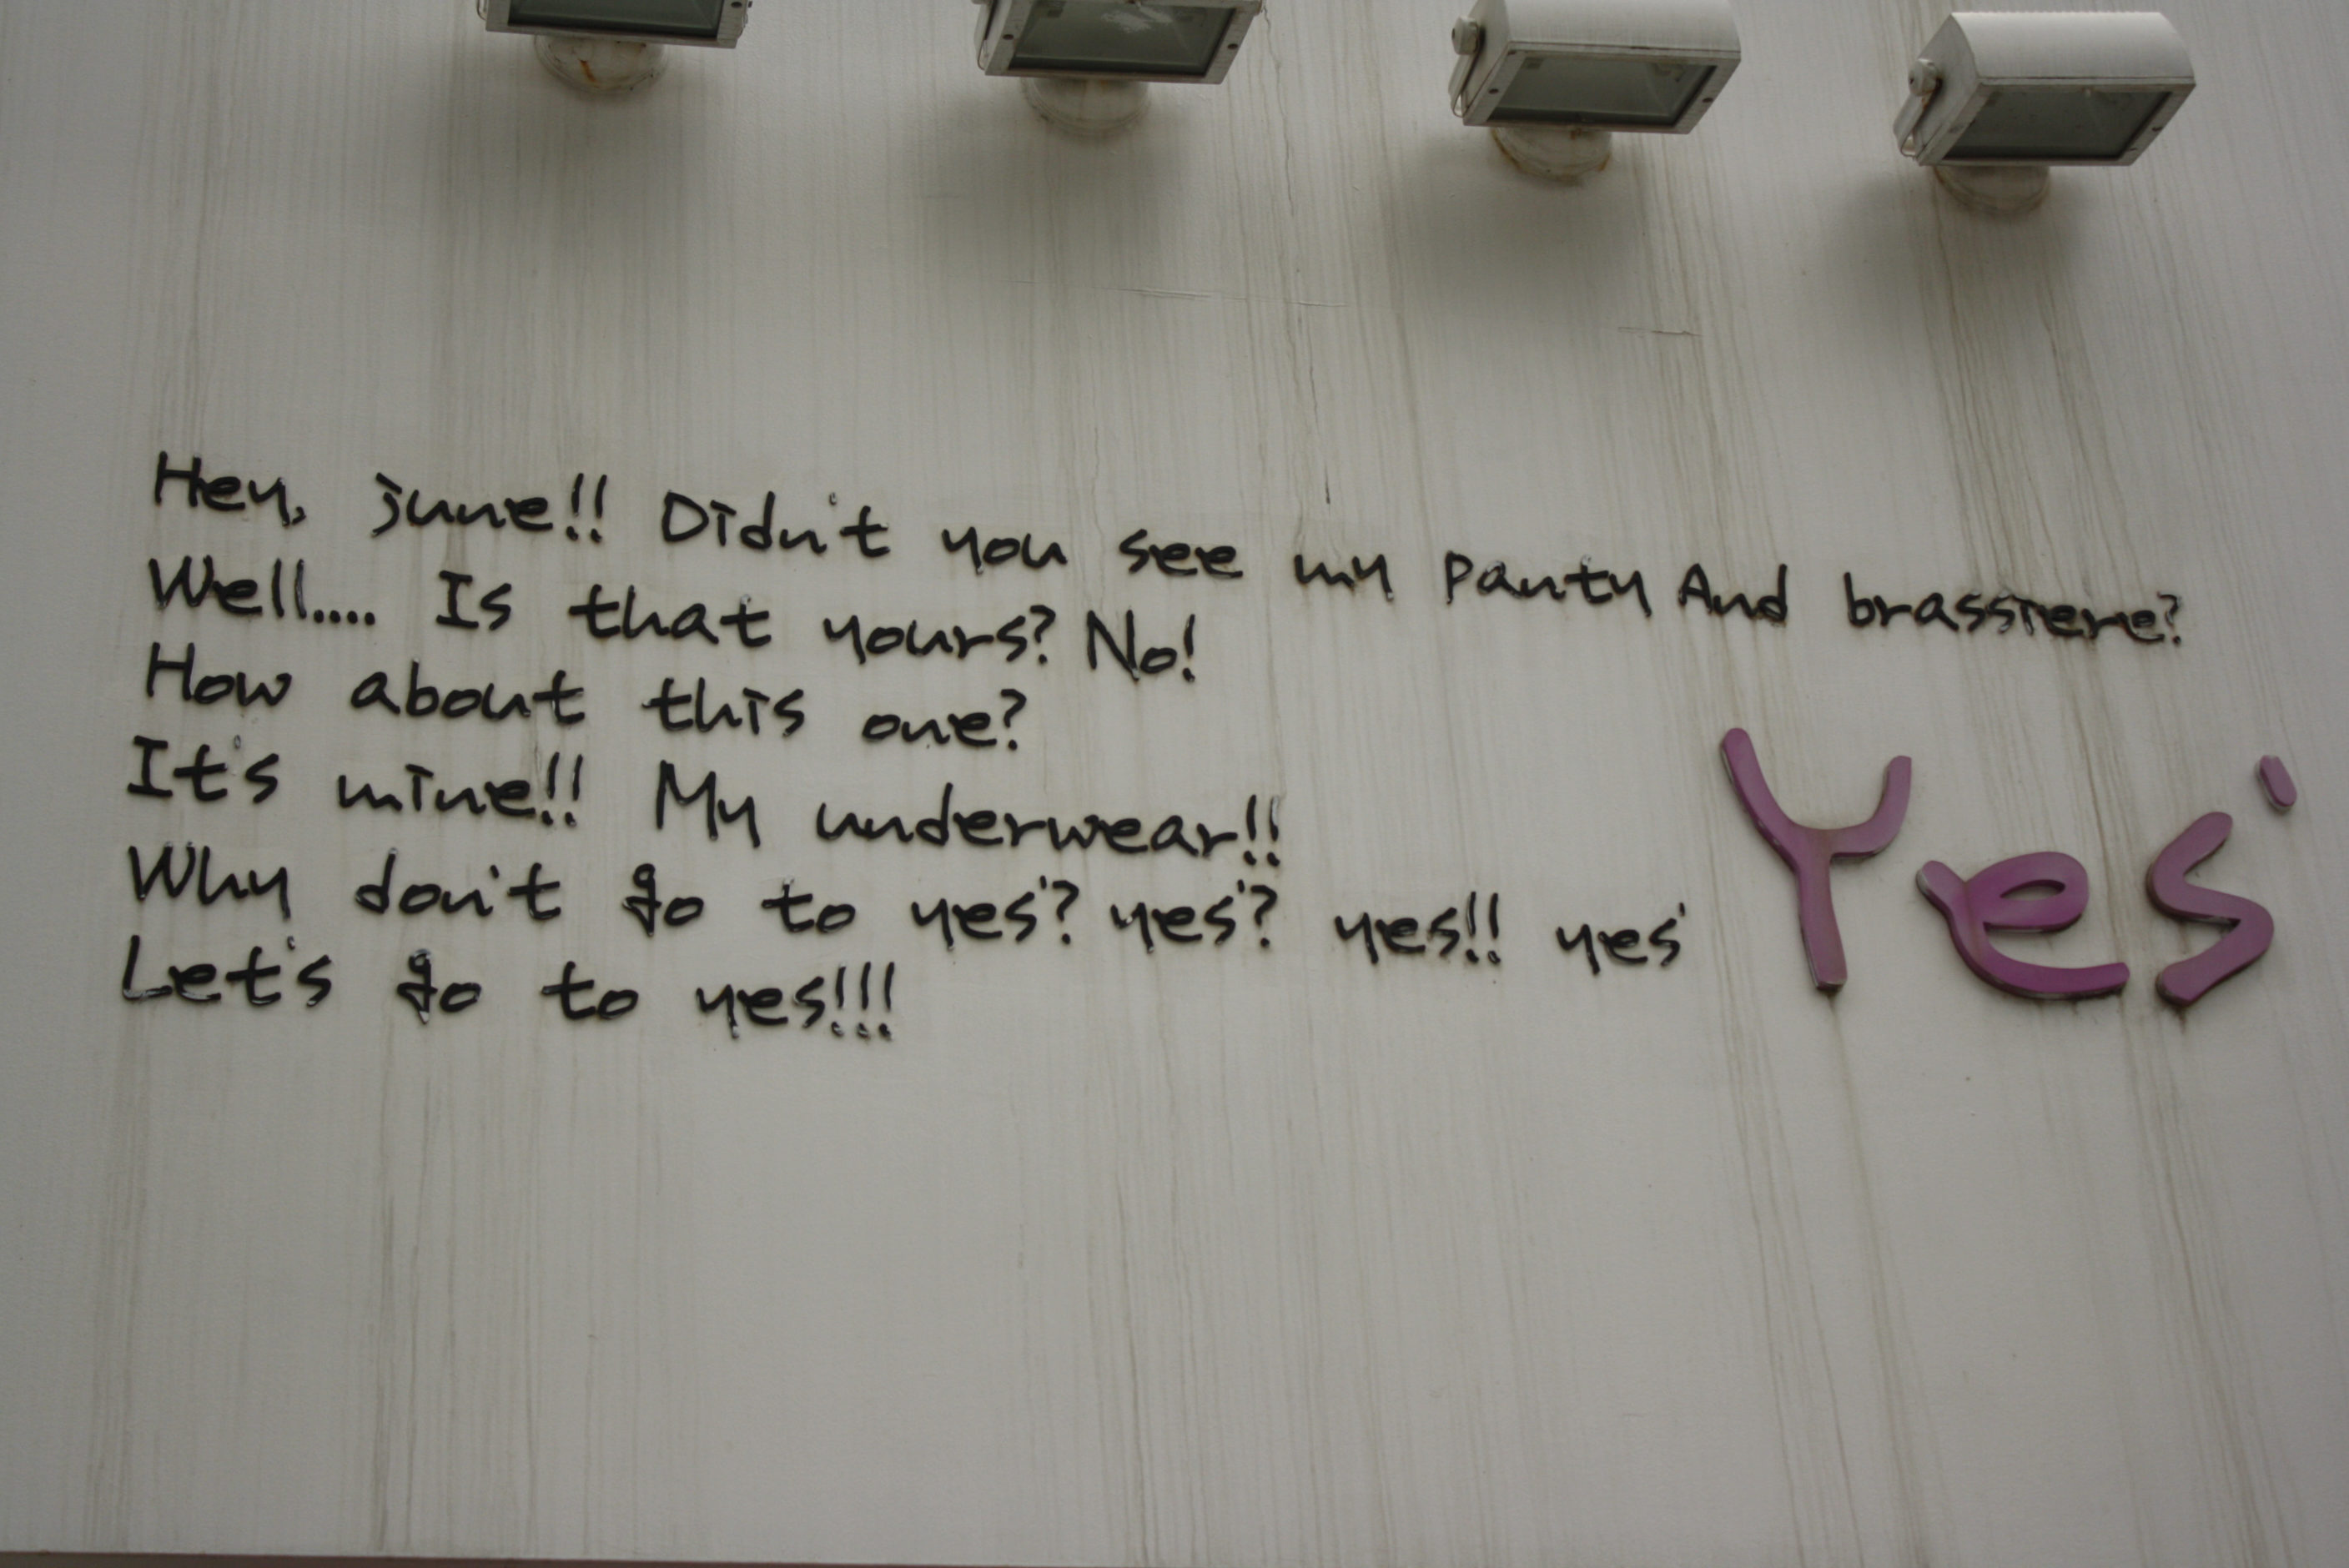 Hey, june!! Didn't you see my panty And brassiere?
Well.... Is that yours? No!
How about this one?
It's mine!! My underwear!!
Why don't go to yes'? yes'? yes!! yes'
Let's go to yes!!!
Yes'